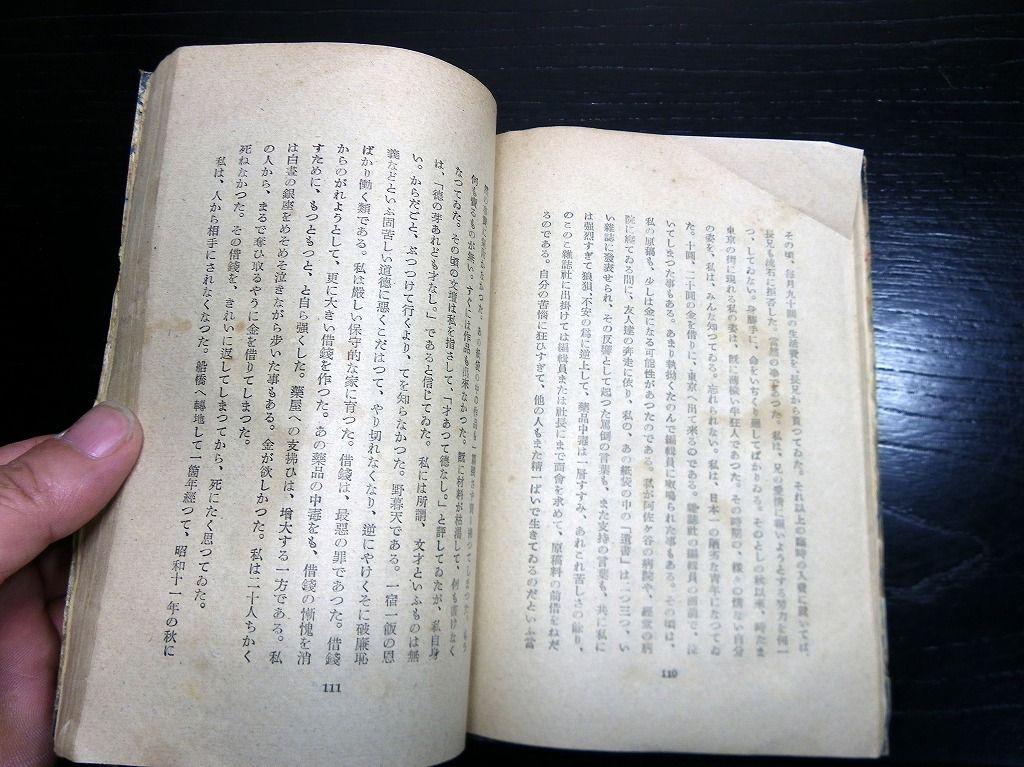 その頃、毎月九十圓の生活費を、長兄から貰つてゐた。それ以上の臨時の入費に就いては、
長兄も流石に拒否した。當然の事であつた。私は、兄の愛情にむくいようとする努力を何一
つ、してゐない。身勝手に、命をいぢくり通してばかりゐる。そのとしの秋以來、時たま
東京の街に現れる私の姿は、既に薄穢い半狂人であつた。その時期の、様々の情ない自分
の姿を、私は、みんな知つてゐる。忘れられない。私は、日本一の陋劣な青年になつてゐ
た。十圓、二十圓の金を借りに、東京へ出て來るのである。雜誌社の編輯員の面前で、泣
いてしまつた事もある。あまり執拗くたのんで編輯員に呶鳴られた事もある。その頃は、
私の原稿も、少しは金になる可能性があつたのである。私が阿佐ケ谷の病院や、經堂の病
院に寢てゐる間に、友人達の奔走に依り、私の、あの紙袋の中の「遺書」は二つ三つ、い
い雜誌に發表せられ、その反響として起つた罵倒の言葉も、また支持の言葉も、共に私に
は強烈すぎて狼狽、不安の爲に逆上して、藥品中毒は一層すすみ、あれこれ苦しさの餘り、
のこのこ雜誌社に出掛けては編輯員または社長にまで面會を求めて、原稿料の前借をねだ
るのである。自分の苦惱に狂ひすぎて、他の人もまた精一ぱいで生きてゐるのだといふ當
110
何も賣るものが無い。すぐには作品も出來なかつた。既に材料が枯渇して、何も書けなく
なつてゐた。その頃の文壇は私を指さして、「才あつて德なし。」と評してゐたが、私自身
は、「德の芽あれども才なし。」であると信じてゐた。私には所謂、文才といふものは無
い。からだごと、ぶつつけて行くより、てを知らなかつた。野暮天である。一宿一飯の恩
義などといふ固苦しい道德に惡くこだはつて、やり切れなくなり、逆にやけくそに破廉恥
ばかり働く類である。私は嚴しい保守的な家に育つた。借錢は、最惡の罪であつた。借錢
からのがれようとして、更に大きい借錢を作つた。あの藥品の中毒をも、借錢の慚愧を消
すために、もつともつと、と自ら強くした。藥屋への支拂ひは、增大する一方である。私
は白晝の銀座をめそめそ泣きながら步いた事もある。金が欲しかつた。私は二十人ちかく
の人から、まるで奪ひ取るやうに金を借りてしまつた。
死ねなかつた。その借錢を、きれいに返してしまつてから、死にたく思つてゐた。
私は、人から相手にされなくなつた。船橋へ轉地して一箇年經つて、昭和十一年の秋に
111